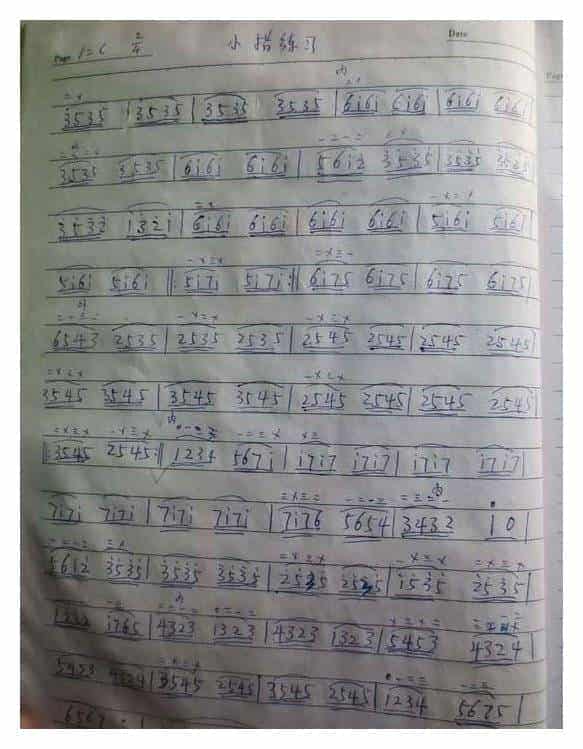 Page 1=C 2/4 小指练习 Date
3535 | 3535 | 3535 3535 | 6i6i 6i6i | 6i6i 6i6i |
3535 3535 | 6i6i 6i6i | 5612 3535 | 3535 3535
3532 132i | 6i6i 6i6i | 6i6i 6i6i | 5i6i 5i6i |
5i6i 5i6i ‖: 5i7i 5i7i :‖ 6i75 6i75 | 6i75 6i75 |
6543 2535 | 2535 2535 | 2545 2545 | 2545 2545 |
3545 3545 | 3545 3545 | 2545 2545 | 2545 2545 |
‖: 3545 2545 :‖ 1234 567i | i7i7 i7i7 | i7i7 i7i7 |
7i7i 7i7i | 7i7i 7i7i | 7i76 5654 | 3432 1 0 |
5612 3535 | 3535 3535 | 2535 2535 | 1535 2535 |
1232 i765 | 4323 1323 | 4323 1323 | 5453 4324 |
5453 4324 | 3545 2545 | 3545 2545 | 1234 5675 |